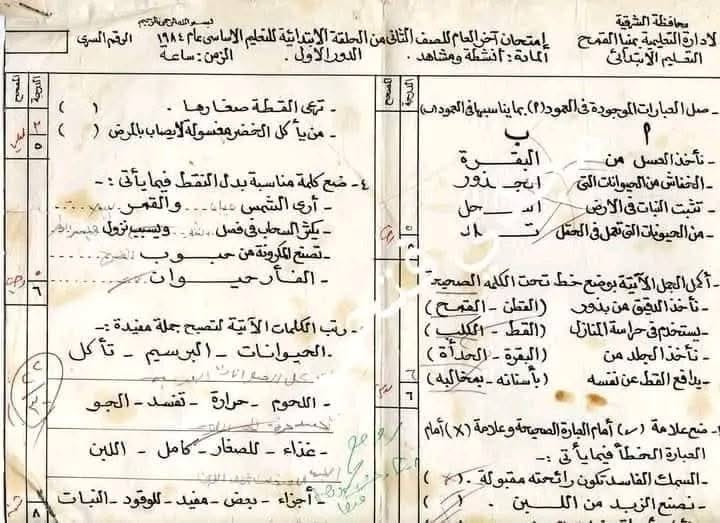 بسم الله الرحمن الرحيم
محافظة الشرقية
لادارة التعليمية بمنيا القمح
التعليم الابتدائى
امتحان آخر العام للصف الثانى من الحلقة الابتدائية للتعليم الاساسى عام ١٩٨٤
المادة: أنشطة ومشاهد . الدور الأول. الزمن: ساعة
الرقم السرى
- صل العبارات الموجودة فى العمود (أ) بما يناسبها فى العمود (ب)
أ ب
- نأخذ العسل من البقرة
- الخفاش من الحيوانات التى الجذور
- تثبت النبات فى الأرض النحل
- من الحيوانات التى تعمل فى الحقل تلد
- أكمل الجمل الآتية بوضع خط تحت الكلمه الصحيحة
- نأخذ الدقيق من بذور (القطن - القمح)
- يستخدم فى حراسة المنازل (القط - الكلب)
- نأخذ الجلد من (البقرة - الحدأة)
- يدافع القط عن نفسه (بأسنانه - بمخالبه)
- ضع علامة (✓) أمام العبارة الصحيحة وعلامة (X) أمام
العبارة الخطأ فيما يأتى :-
- السمك الفاسد تكون رائحته مقبولة . (X)
- نصنع الزبد من اللبن . ( )
الدرجة
المصحح
- ترعى القطة صغارها . ( )
- من يأكل الخضر مغسولة لا يصاب بالمرض ( )
٣
٥
٤- ضع كلمة مناسبة بدل النقط فيما يأتى :-
- أرى الشمس والقمر
- يكثر السحاب فى فصل ويسبب نزول
- تصنع المكرونة من حبوب
- الفأر حيوان
٥
٦
- رتب الكلمات الآتية لتصبح جملة مفيدة :-
- الحيوانات - البرسيم - تأكل
- اللحوم - حرارة - تفسد - الجو
- غذاء - للصغار - كامل - اللبن
- أجزاء - بعض - مفيد - للوقود - النبات
٢٢
٣٠
٨